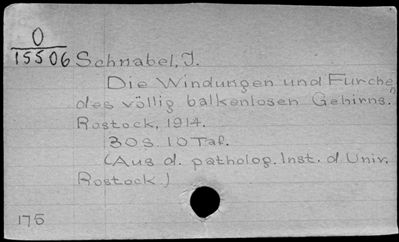 O
15506 Schnabel, J.
Die Windungen und Furchen
des völlig balkenlosen Gehirns.
Rostock, 1914.
30 S. 10 Taf.
(Aus d. patholog. Inst. d Univ.
Rostock.)
175